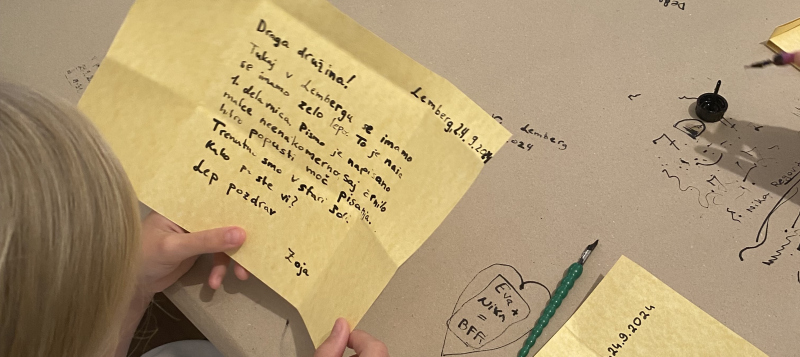 Lemberg, 24.9.2024
Draga družina!
Tukaj v Lembergu se imamo
se imamo zelo lepo. To je naša
1. delavnica. Pismo je napisano
malce neenakomerno saj črnilo
hitro popusti moč pisanja.
Trenutno smo v stari šoli.
Kako pa ste vi?
Lep pozdrav
Zoja
Lemberg
2024
Eva +
Nika
=
BFF
24.9.2024
Nika